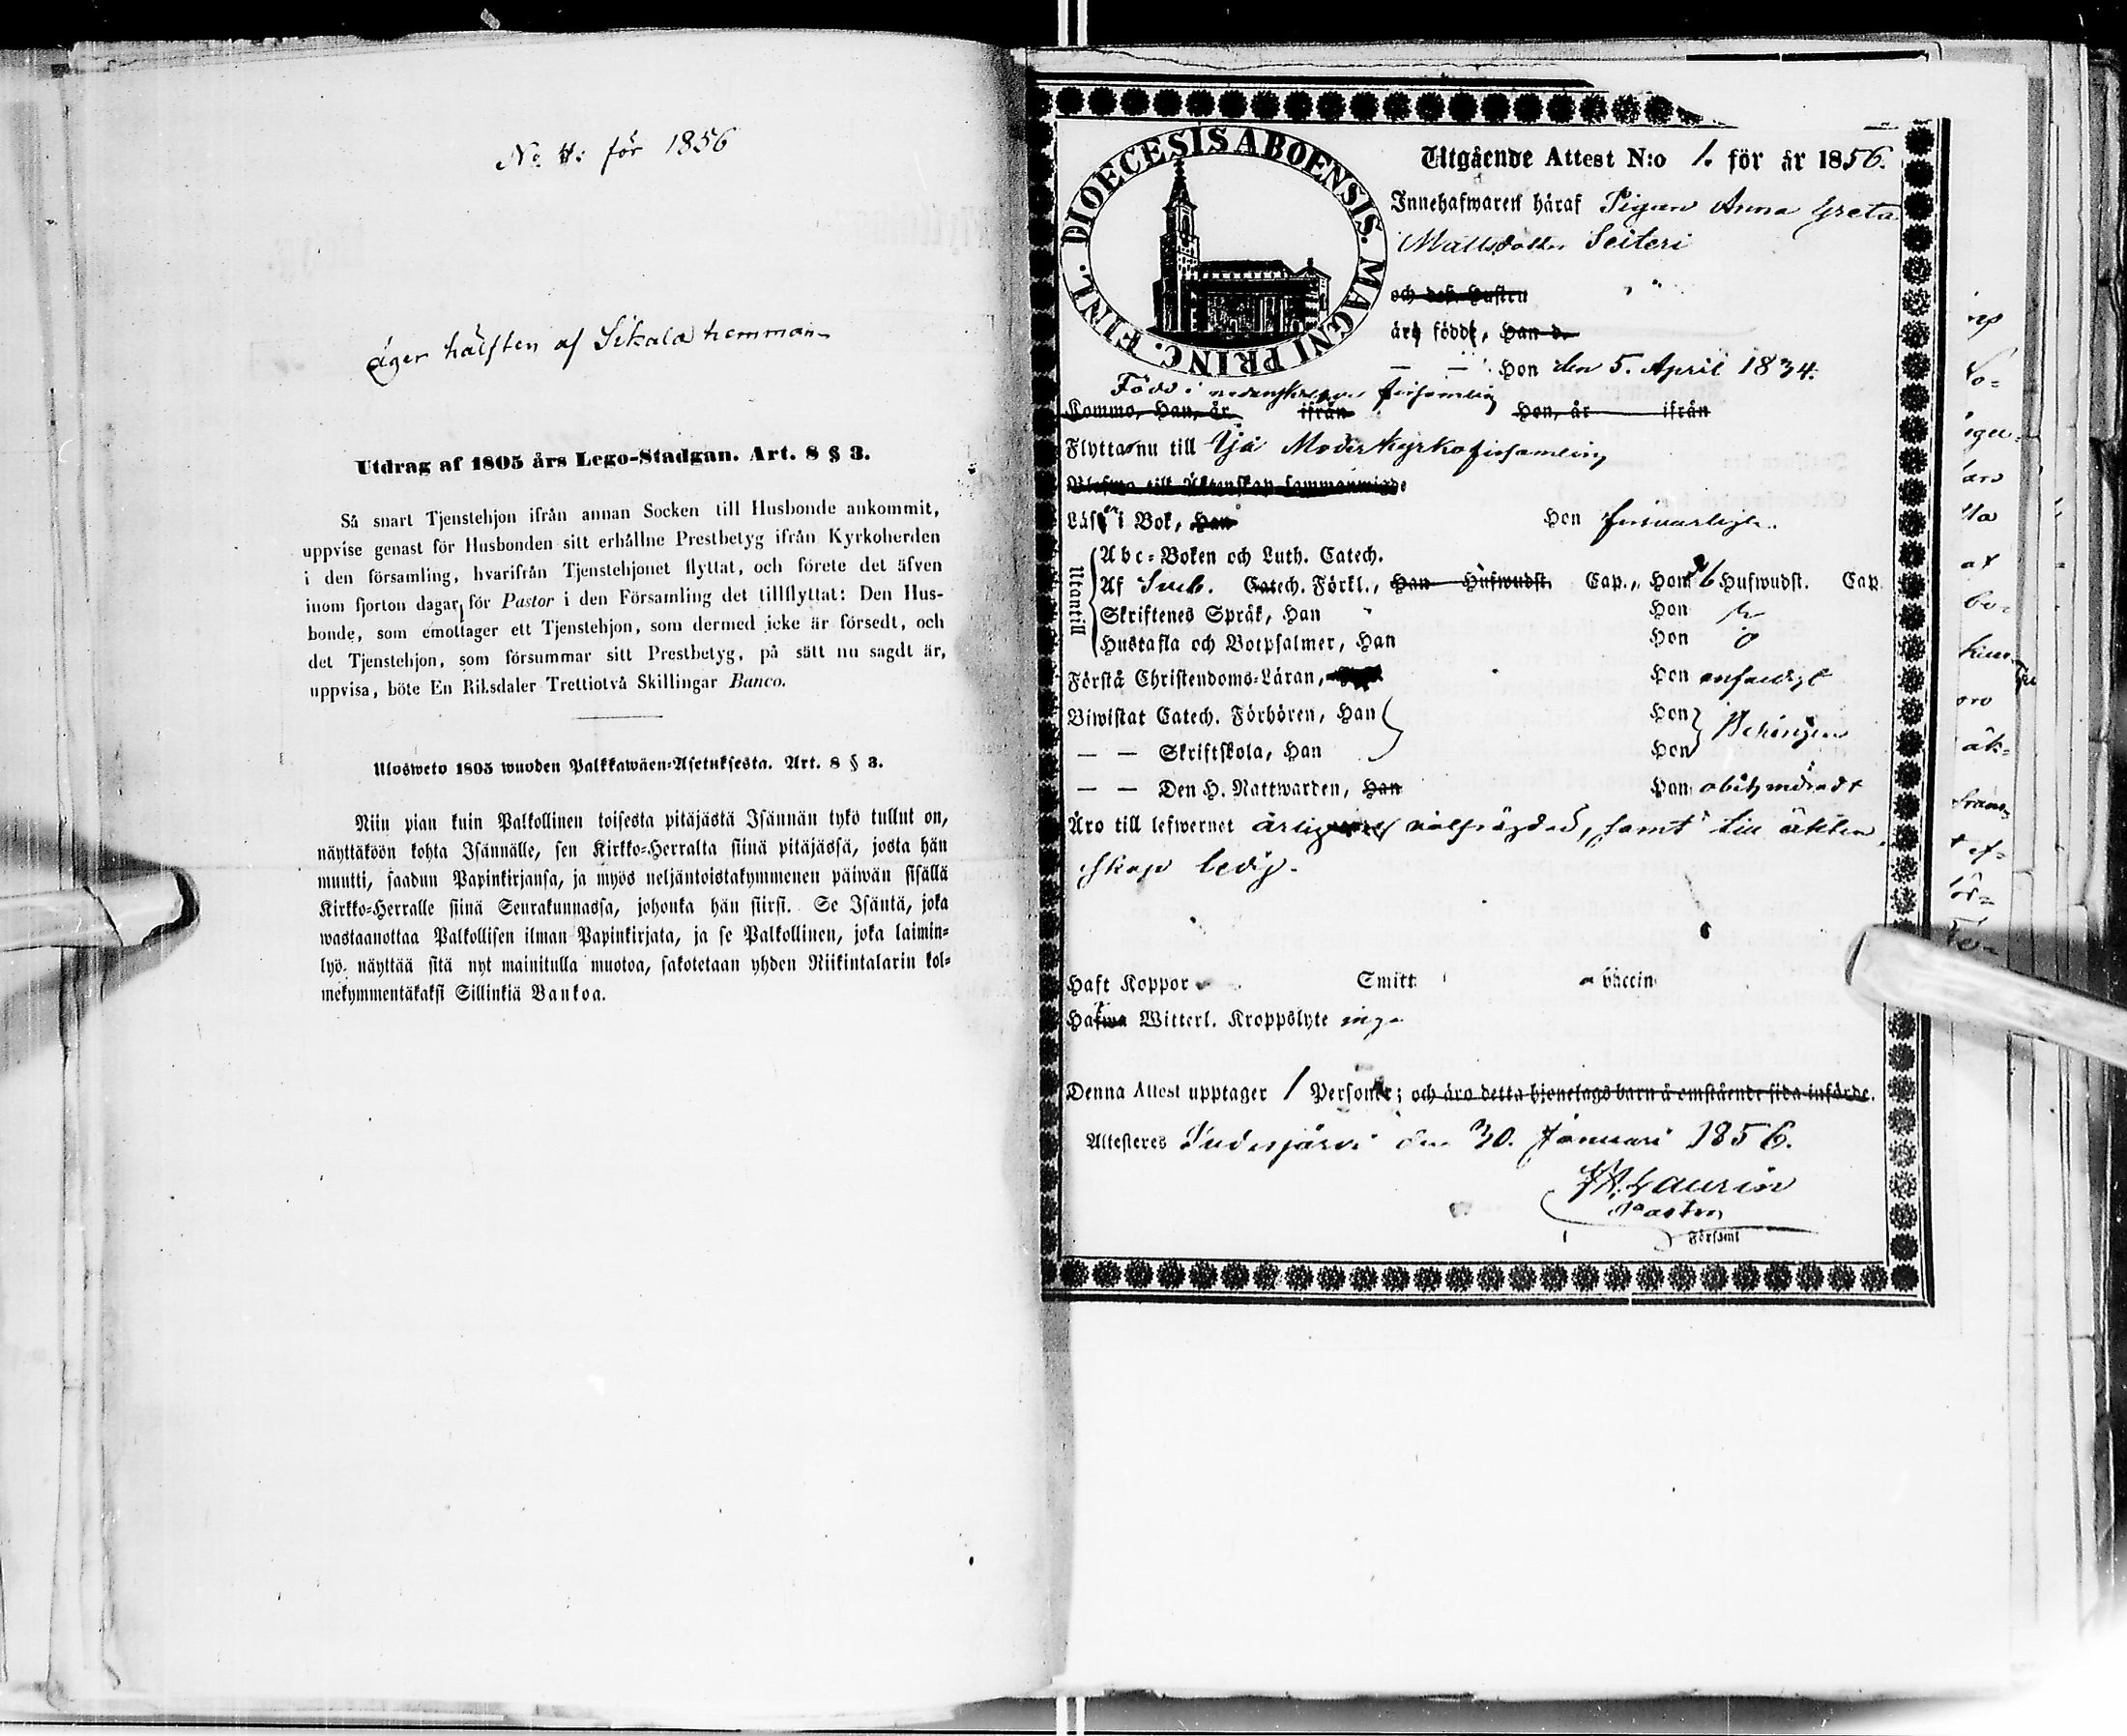 No 4: för 1856
äger hälften af Sikala hemman
Utdrag af 1805 års Lego-Stadgan. Art. 8 § 3.
Så snart Tjenstehjon ifrån annan Socken till Husbonde ankommit,
uppvise genast för Husbonden sitt erhållne Prestbetyg ifrån Kyrkoherden
i den församling, hvarifrån Tjenstehjonet flyttat, och förete det äfven
inom fjorton dagar för Pastor i den Församling det tillflyttat: Den Hus-
bonde, som emottager ett Tjenstehjon, som dermed icke är försedt, och
det Tjenstehjon, som försummar sitt Prestbetyg, på sätt nu sagdt är,
uppvisa, böte En Riksdaler Trettiotvå Skillingar Banco.
Ulosweto 1805 wuoden Palkkawäen-Asetuksesta. Art. 8 § 3.
Niin pian kuin Palkollinen toisesta pitäjästä Isännän tykö tullut on,
näyttäköön kohta Isännälle, sen Kirkko-Herralta siinä pitäjässä, josta hän
muutti, saadun Papinkirjansa, ja myös neljäntoistakymmenen päiwän sisällä
Kirkko-Herralle siinä Seurakunnassa, johonka hän siirsi. Se Isäntä, joka
wastaanottaa Palkollisen ilman Papinkirjata, ja se Palkollinen, joka laimin-
lyö näyttää sitä nyt mainitulla muotoa, sakotetaan yhden Riikintalarin kol-
mekymmentäkaksi Sillinkiä Bankoa.
DIOECESIS ABOENSIS. MAGNI PRINC. FINL.
Utgående Attest N:o 1. för år 1856.
Innehafwaren häraf Pigan Anna Greta
Mattsdotter Seiteri
och dess hustru
äro född, Han d.
— — Hon den 5. April 1834.
Född i nedanskrefne församling
Kommo, Han, år ifrån Hon, år ifrån
Flyttar nu till Ijå Moderkyrkoförsamling
Blefwo till Äktenskap sammanwigde
Läser i Bok, Han Hon försvarligt.
Utantill
Abc-Boken och Luth. Catech.
Af Sveb. Catech. Förkl., Han Hufwudst. Cap., Hon 36 Hufwudst. Cap.
Skriftenes Språk, Han Hon
Hustafla och Botpsalmer, Han Hon
Förstå Christendoms-Läran, Hon enfaldigt
Biwistat Catech. Förhören, Han Hon
— — Skriftskola, Han Hon behörigen
— — Den H. Nattwarden, Han Hon obehindradt
Äro till lefwernet ärlig välfrägdad, samt till äkten
skap ledig.
Haft Koppor Smitt Vaccin
Har Witterl. Kroppslyte inga
Denna Attest upptager 1 Person; och äro detta hjonelags barn å omstående sida införde.
Attesteras Pudasjärvi den 30. Januari 1856.
Laurin
Pastor
Församl